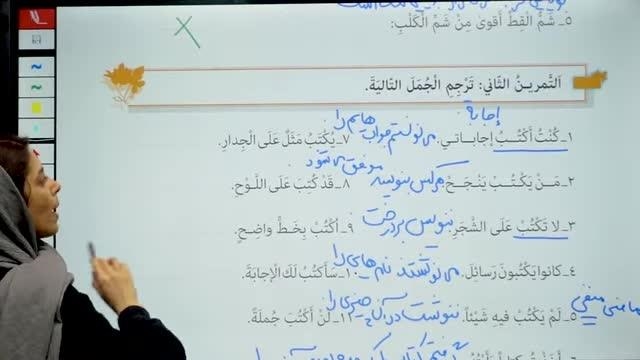 ٥ـ شَمُّ الْقِطِّ أَقْویٰ مِنْ شَمِّ الْكَلْبِ:
اَلتَّمرينُ الثّاني: تَرْجِمِ الْجُمَلَ التّاليَةَ.
إجابة
١ـ كُنْتُ أَكْتُبُ إجاباتي. می‌نوشتم جواب‌هایم را
٧ـ يُكْتَبُ مَثَلٌ عَلَی الْجِدارِ.
موفق می‌شود
٢ـ مَنْ يَكْتُبْ يَنْجَحْ. هرکس بنویسد
٨ـ قَدْ كُتِبَ عَلَی اللَّوْحِ.
٣ـ لا تَكْتُبْ عَلَی الشَّجَرِ ننویس بر درخت
٩ـ اُكْتُبْ بِخَطٍّ واضِحٍ.
٤ـ كانوا يَكْتُبونَ رَسائِلَ. می‌نوشتند نامه‌های را
١٠ـ سَأَكتُبُ لَكَ الْإجابَةَ.
ماضی منفی
٥ـ لَمْ يَكْتُبْ فيهِ شَيْئاً. ننوشت در آن چیزی را
١٢ـ لَنْ أَكْتُبَ جُملَةً.